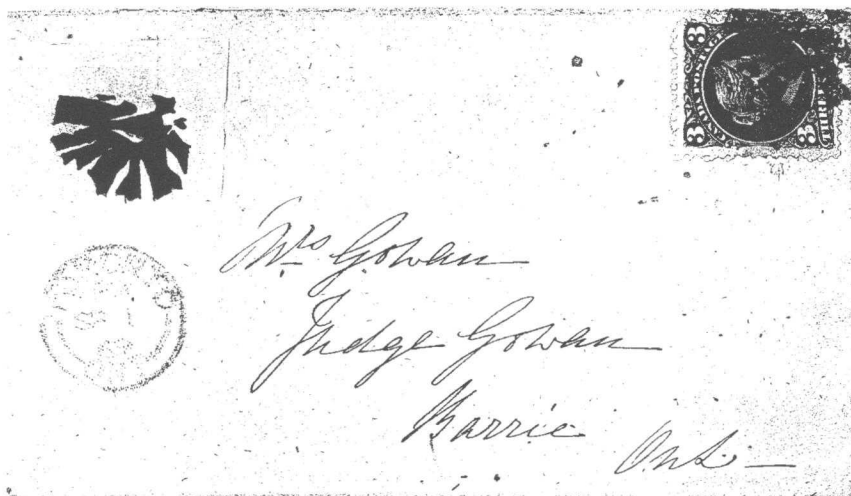 3 3
3
Mrs Gowan
Judge Gowan
Barrie Ont